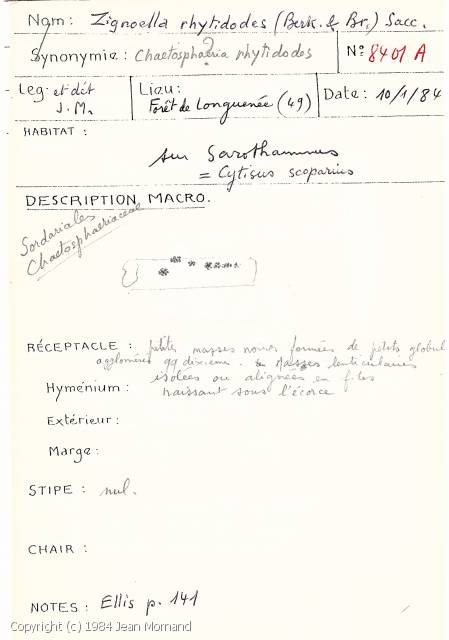 Nom: Zignoella rhytidodes (Berk. & Br.) Sacc.
?
Synonymie: Chaetosphaeria rhytidodes
N° 8401 A
Leg. et dét
J. M.
Lieu:
Forêt de Longuenée (49)
Date: 10/1/84
HABITAT :
sur Sarothamnus
= Cytisus scoparius
DESCRIPTION MACRO.
Sordariales
Chaetosphaeriaceae
RÉCEPTACLE : petites masses noires formées de petits globul
agglomérés qq dixième. Masses lenticulaires
isolées ou alignées en files
naissant sous l'écorce
Hyménium:
Extérieur:
Marge:
STIPE : nul.
CHAIR :
NOTES: Ellis p. 141
Copyright (c) 1984 Jean Mornand